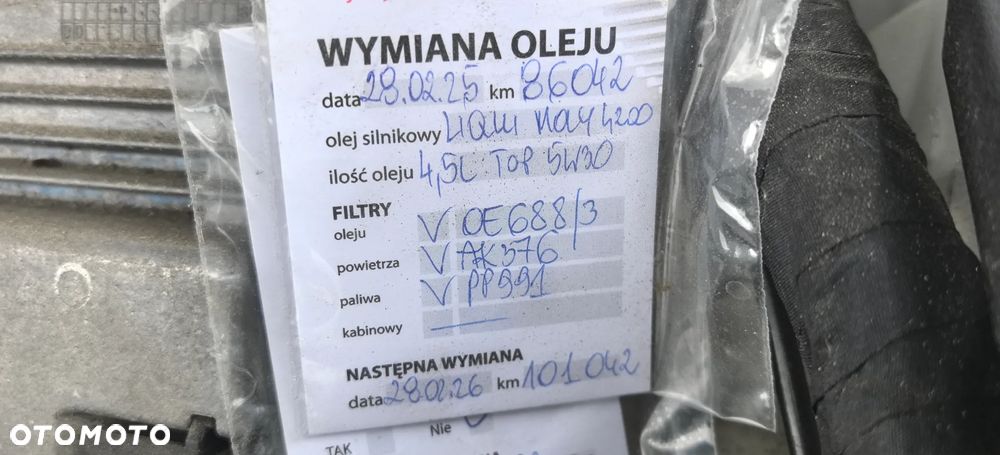 WYMIANA OLEJU
data 28.02.25 km 86042
olej silnikowy LIQUI MOLY 4200
ilość oleju 4,5L TOP 5W30
FILTRY
oleju V OE688/3
powietrza V AK376
paliwa V PP991
kabinowy —
NASTĘPNA WYMIANA
data 28.02.26 km 101042
Nie
TAK
OTOMOTO